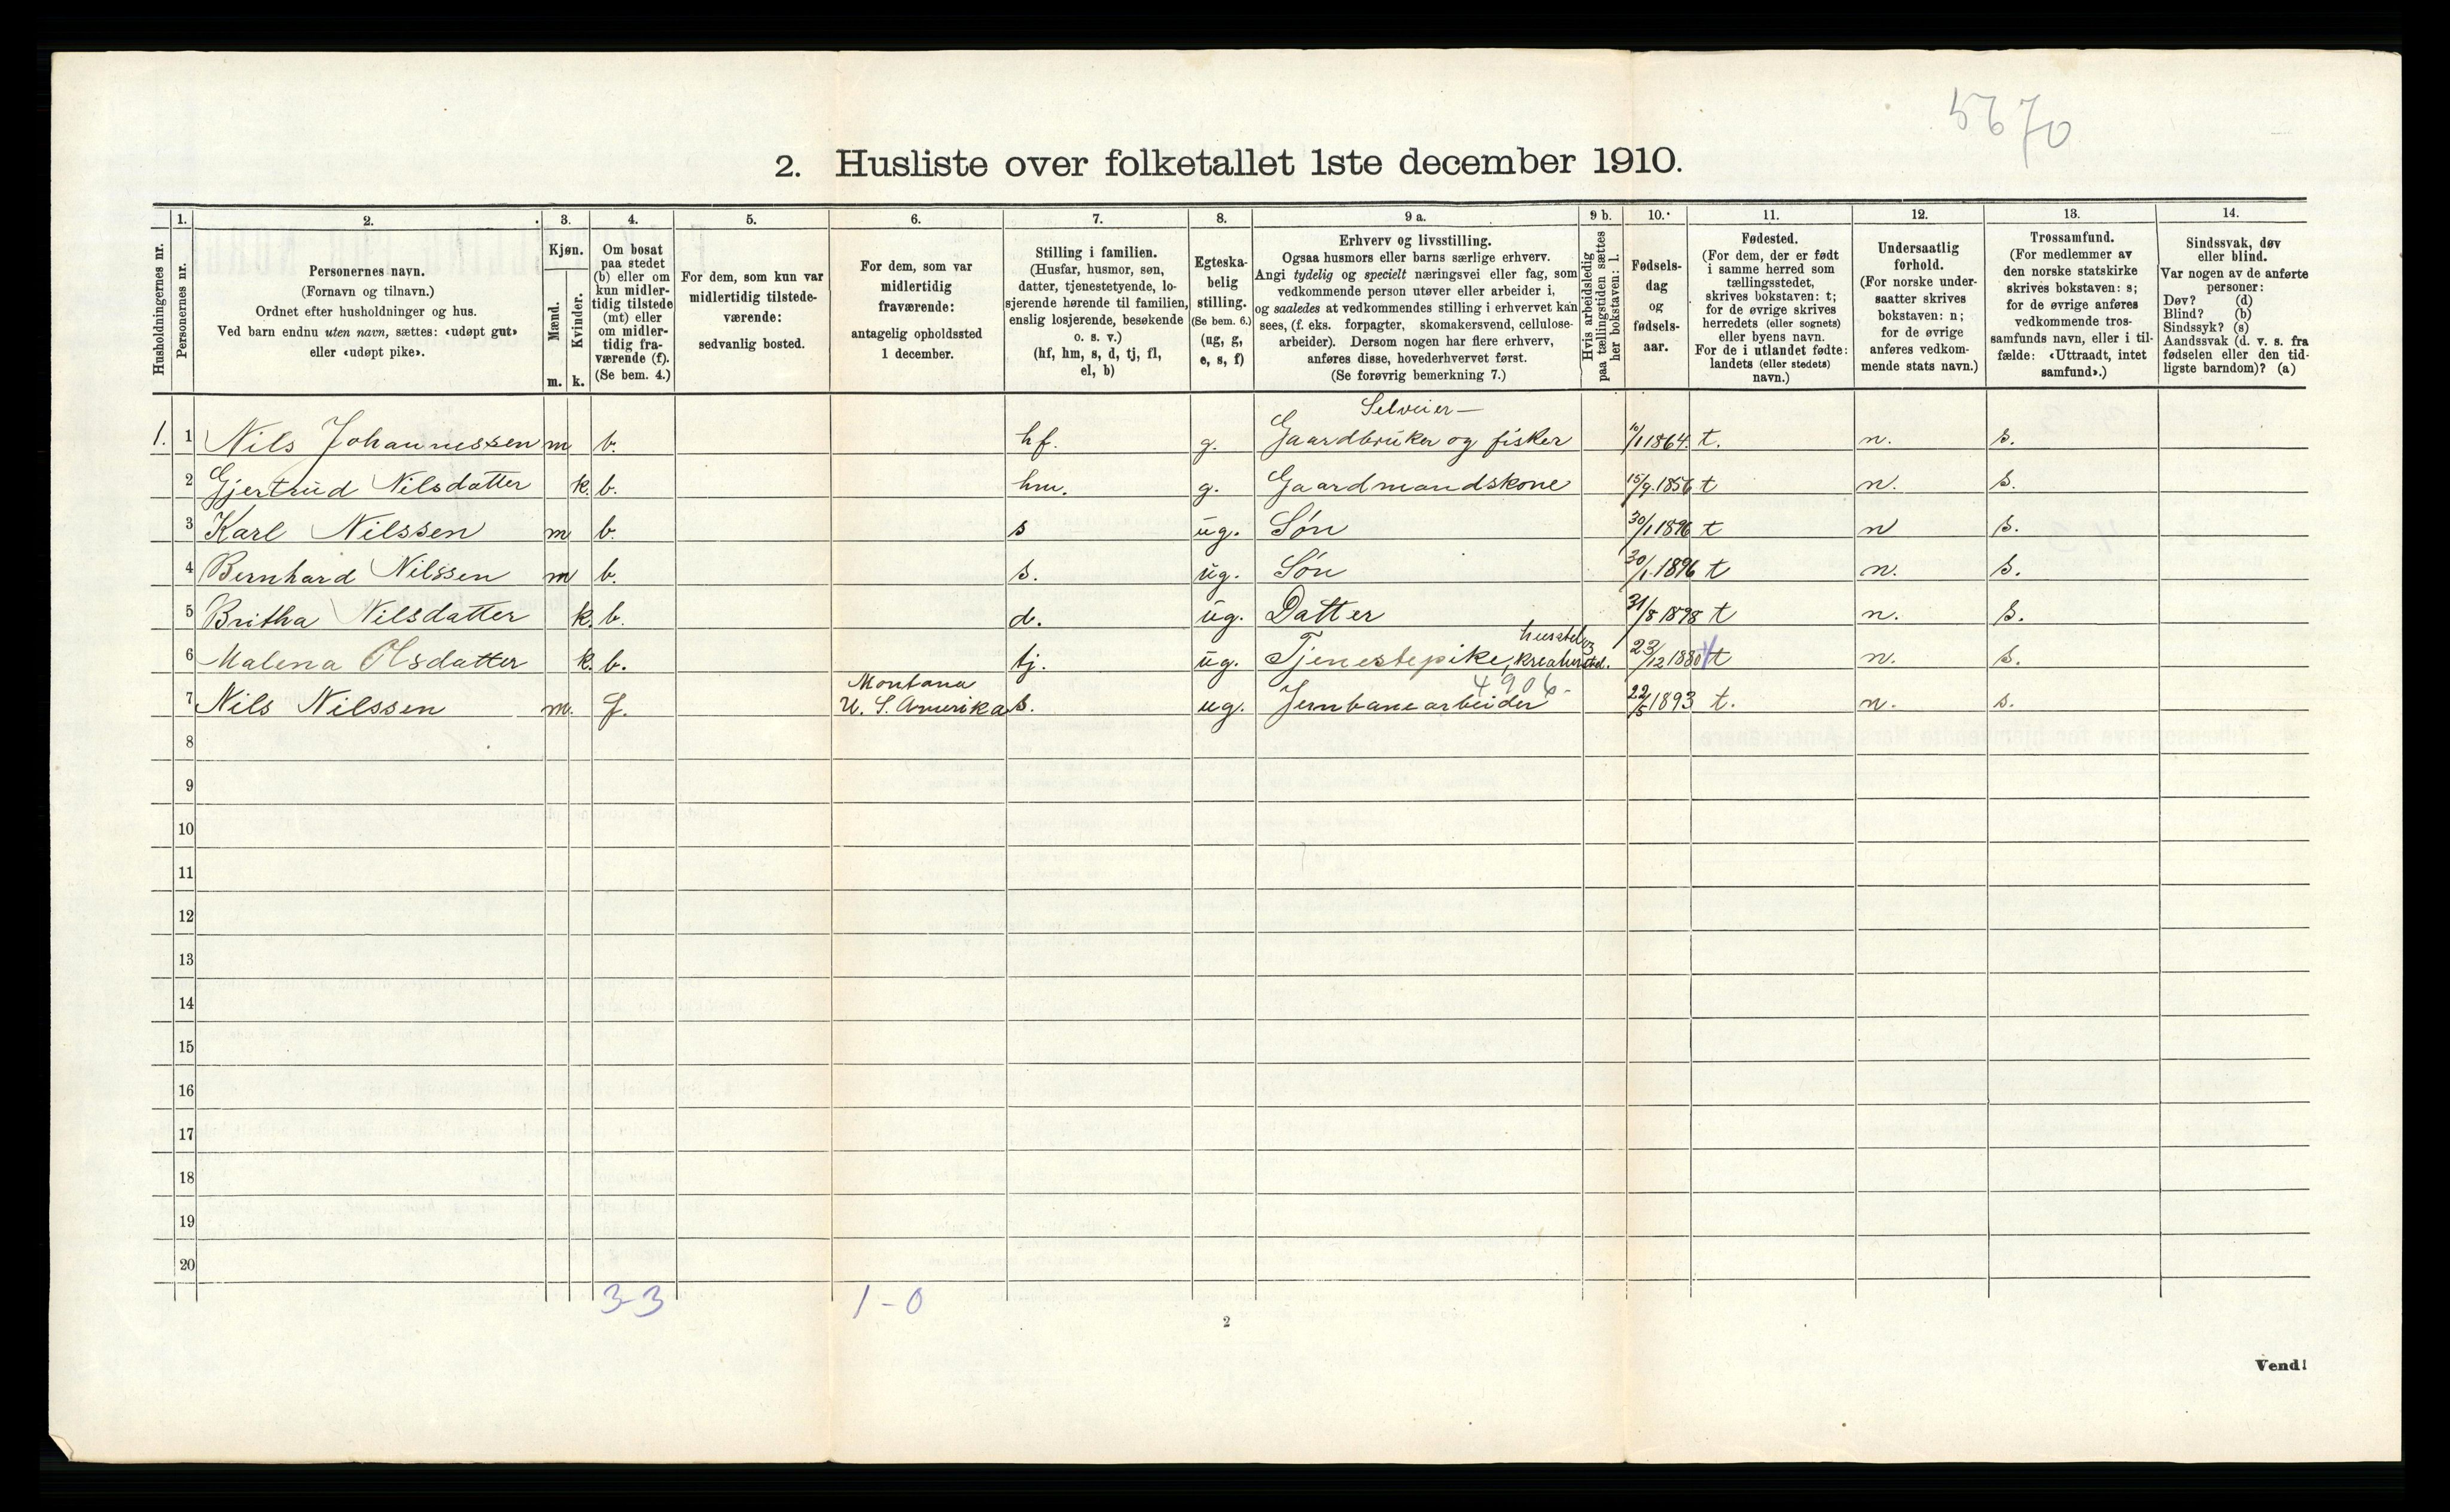 5670
2. Husliste over folketallet 1ste december 1910.
Husholdningernes nr.
1.
Personernes nr.
2.
Personernes navn.
(Fornavn og tilnavn.)
Ordnet efter husholdninger og hus.
Ved barn endnu uten navn, sættes: «udøpt gut»
eller «udøpt pike».
3.
Kjøn.
Mænd.
Kvinder.
m. k.
4.
Om bosat
paa stedet
(b) eller om
kun midler-
tidig tilstede
(mt) eller
om midler-
tidig fra-
værende (f).
(Se bem. 4.)
5.
For dem, som kun var
midlertidig tilstede-
værende:
sedvanlig bosted.
6.
For dem, som var
midlertidig
fraværende:
antagelig opholdssted
1 december.
7.
Stilling i familien.
(Husfar, husmor, søn,
datter, tjenestetyende, lo-
sjerende hørende til familien,
enslig losjerende, besøkende
o. s. v.)
(hf, hm, s, d, tj, fl,
el, b)
8.
Egteska-
belig
stilling.
(Se bem. 6.)
(ug, g,
e, s, f)
9 a.
Erhverv og livsstilling.
Ogsaa husmors eller barns særlige erhverv.
Angi tydelig og specielt næringsvei eller fag, som
vedkommende person utøver eller arbeider i,
og saaledes at vedkommendes stilling i erhvervet kan
sees, (f. eks. forpagter, skomakersvend, cellulose-
arbeider). Dersom nogen har flere erhverv,
anføres disse, hovederhvervet først.
(Se forøvrig bemerkning 7.)
9 b.
Hvis arbeidsledig
paa tællingstiden sættes
her bokstaven: l.
10.
Fødsels-
dag
og
fødsels-
aar.
11.
Fødested.
(For dem, der er født
i samme herred som
tællingsstedet,
skrives bokstaven: t;
for de øvrige skrives
herredets (eller sognets)
eller byens navn.
For de i utlandet fødte:
landets (eller stedets)
navn.)
12.
Undersaatlig
forhold.
(For norske under-
saatter skrives
bokstaven: n;
for de øvrige
anføres vedkom-
mende stats navn.)
13.
Trossamfund.
(For medlemmer av
den norske statskirke
skrives bokstaven: s;
for de øvrige anføres
vedkommende tros-
samfunds navn, eller i til-
fælde: «Uttraadt, intet
samfund».)
14.
Sindssvak, døv
eller blind.
Var nogen av de anførte
personer:
Døv? (d)
Blind? (b)
Sindssyk? (s)
Aandssvak (d. v. s. fra
fødselen eller den tid-
ligste barndom)? (a)
Selveier -
1. 1 Nils Johannessen m b. hf. g. Gaardbruker og fisker 10/1 1864. t. n. s.
2 Gjertrud Nilsdatter k. b. hm. g. Gaardmandskone 15/9. 1856 t n. s.
3 Karl Nilssen m b. s ug. Søn 30/1 1896 t n s.
4 Bernhard Nilssen m b. s. ug. Søn 30/1. 1896 t n. s.
5 Britha Nilsdatter k. b. d. ug. Datter 31/8 1898 t n. s.
husstel og
6 Malena Olsdatter k. b. tj. ug. Tjenestepike, kreaturstel. 23/12 1880 t n. s.
Montana 4906-
7 Nils Nilssen m. f. U. S. Amerika s. ug. Jernbanearbeider 22/5 1893 t. n. s.
8
9
10
11
12
13
14
15
16
17
18
19
20
3-3 1-0
2
Vend!